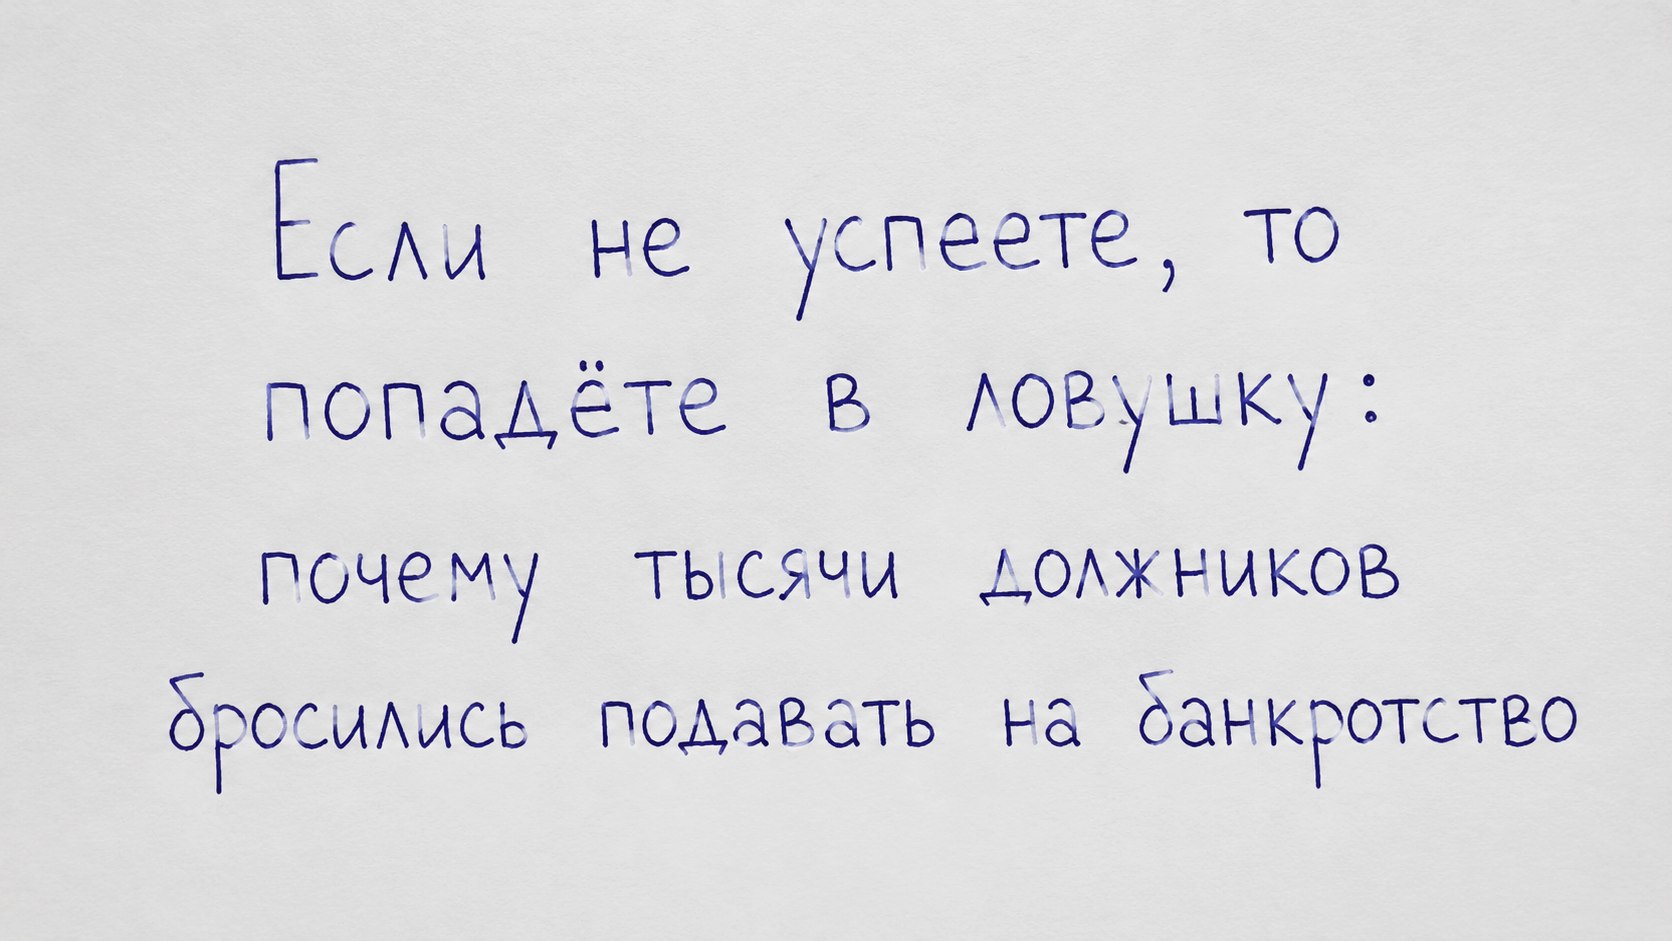 Если не успеете, то
попадёте в ловушку:
почему тысячи должников
бросились подавать на банкротство